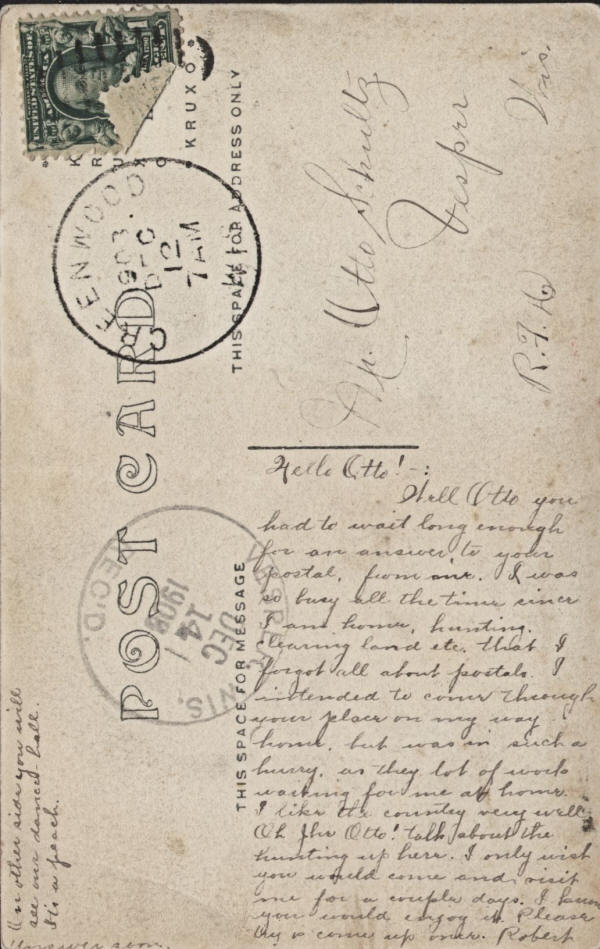 UNITED STATES OF AMERICA
KRUXO
KENWOOD
DEC
12
7AM
POST CARD
THIS SPACE FOR ADDRESS ONLY
Mr. Otto Schultz
Vesper
Wis.
R.F.D.
VESPER, WIS.
DEC
14
REC'D.
THIS SPACE FOR MESSAGE
Hello Otto! - :
Well Otto you
had to wait long enough
for an answer to your
postal, from me. I was
so busy all the time since
I am home, hunting,
clearing land etc. that I
forgot all about postals. I
intended to come through
your place on my way
home, but was in such a
hurry, as they lot of work
waiting for me at home.
I like the country very well
Oh Otto! talk about the
hunting up here. I only wish
you would come and visit
me for a couple days. I know
you would enjoy it. Please
try &amp; come up once. Robert
On other side you will
see our dance hall.
It is a peach.
Answer soon.